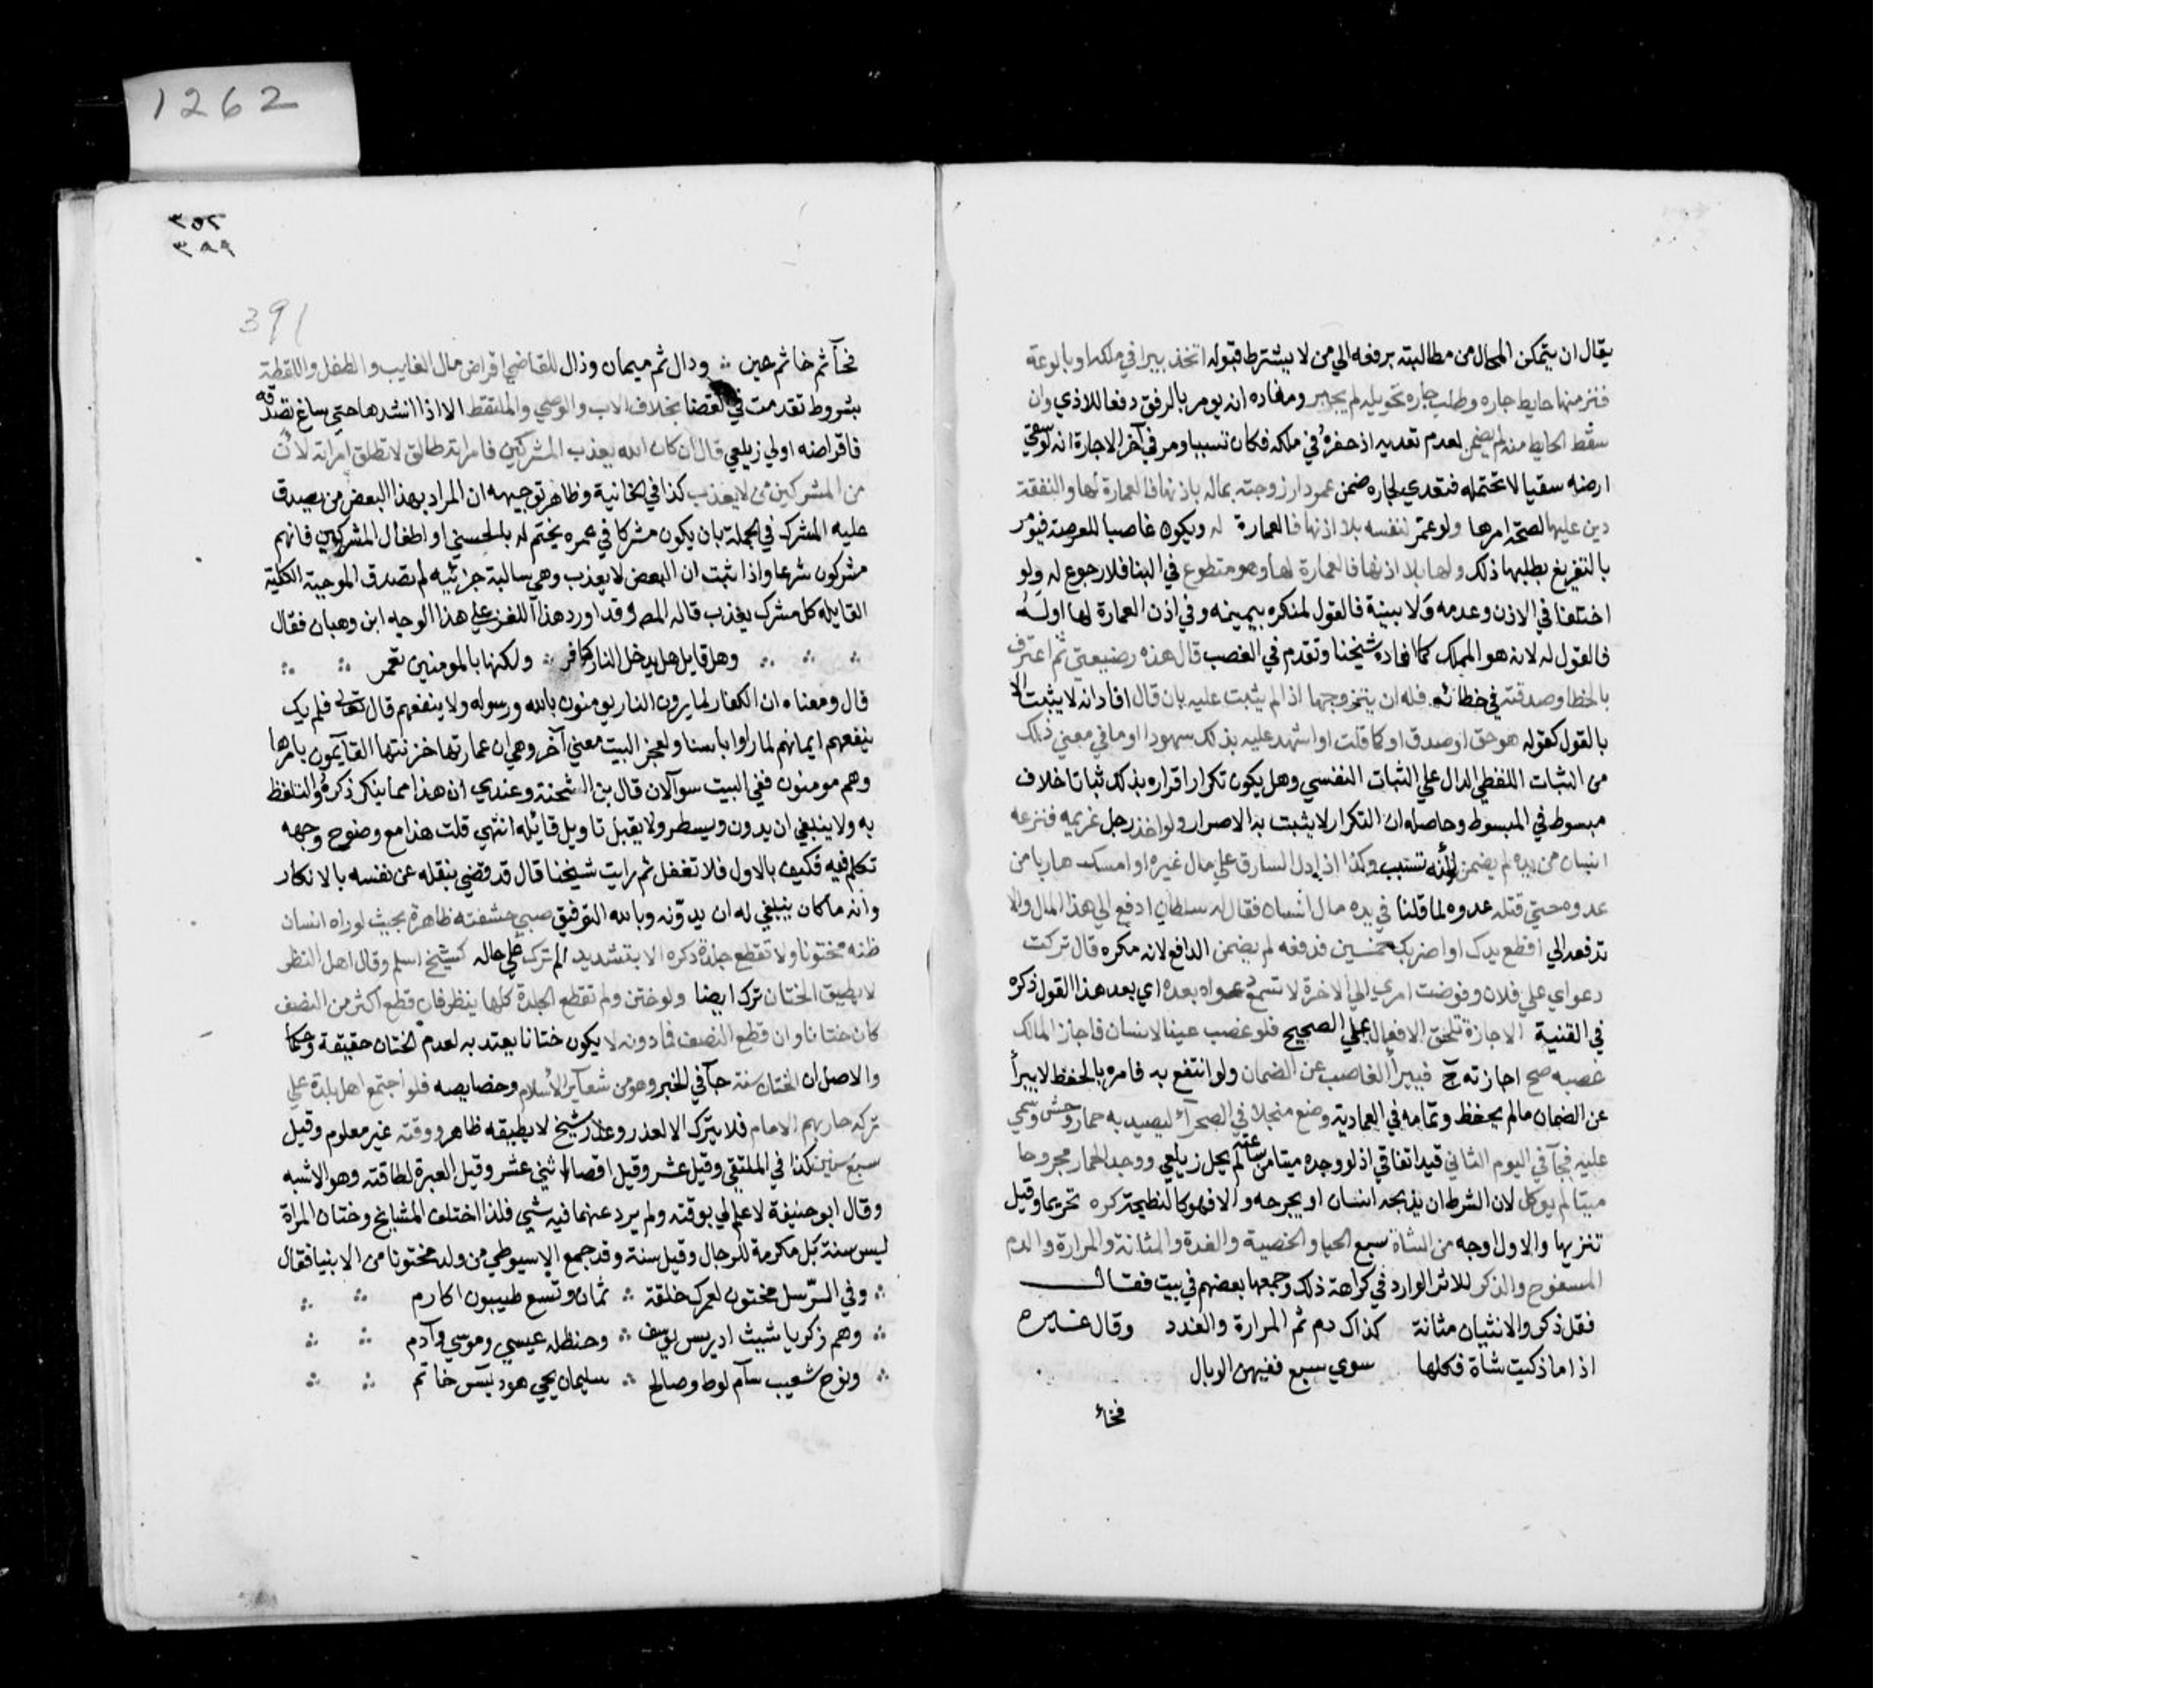 1262
يقال ان يتمكن المحال من مطالبته برفعه الي من لا يشترط قبوله اتخذ بيرا في ملكه او بالوعة
فنز منها حايط جاره وطلب جاره تحويله لم يجبر ومفاده انه يومر بالرفق دفعا للاذي وان
سقط الحايط منه لم يضمن لعدم تعديه اذ حفره في ملكه فكان تسببا ومر في آخر الاجارة انه لو سقي
ارضه سقيا لا تحتمله فتعدي لجاره ضمن عمر دار زوجته بماله باذنها فالعمارة لها والنفقة
دين عليها لصحة امرها ولو عمر لنفسه بلا اذنها فالعمارة له ويكون غاصبا للعرصة فيؤمر
بالتفريغ بطلبها ذلك ولها بلا اذنها فالعمارة لها وهو متطوع في البنا فلا رجوع له ولو
اختلفا في الاذن وعدمه ولا بينة فالقول لمنكره بيمينه وفي اذن العمارة لها اوله
فالقول له لانه هو المملك كما افاده شيخنا وتقدم في الغصب قال هذه رضيعتي ثم اعترف
بالخطا وصدقته في خطائه فله ان يتزوجها اذا لم يثبت عليه بان قال افاد انه لا يثبت الا
بالقول كقوله هو حق او صدق او كما قلت او اشهد عليه بذلك شهودا او ما في معني ذلك
من الثبات اللفظي الدال علي الثبات النفسي وهل يكون تكرار اقراره بذلك ثباتا خلاف
مبسوط في المبسوط وحاصله ان التكرار لا يثبت به الاصرار ولو اخذ رجل غريمه فنزعه
انسان من يده لم يضمن لأنه تسبب وكذا اذا دل السارق علي مال غيره او امسك هاربا من
عدوه حتي قتله عدوه لما قلنا في يده مال انسان فقال له سلطان ادفع الي هذا المال والا
تدفعه الي اقطع يدك او اضربك خمسين فدفعه لم يضمن الدافع لانه مكره قال تركت
دعواي علي فلان وفوضت امري الي الاخرة لا تسمع دعواه بعده اي بعد هذا القول ذكره
في القنية الاجازة تلحق الافعال علي الصحيح فلو غصب عينا لانسان فاجاز المالك
غصبه صح اجازته فيبرأ الغاصب عن الضمان ولو انتفع به فامره بالحفظ لا يبرأ
عن الضمان مالم يحفظ وتمامه في العمادية وضع منجلا في الصحرآء ليصيد به حمار وحش وسمي
عليه فجآ في اليوم الثاني قيد اتفاقي اذ لو وجده ميتا من ساعته لم يحل زيلعي ووجد الحمار مجروحا
ميتا لم يوكل لان الشرط ان يذبحه انسان او يجرحه والا فهو كالنطيحة كره تحريما وقيل
تنزيها والاول اوجه من الشاة سبع الحيا والخصية والغدة والمثانة والمرارة والدم
المسفوح والذكر للاثر الوارد في كراهة ذلك وجمعها بعضهم في بيت فقال
فقل ذكر والانثيان مثانة كذاك دم ثم المرارة والغدد وقال غيره
اذا ما ذكيت شاة فكلها سوي سبع ففيهن الوبال
فخاء
٣٥٢
٣٨٩
391
فخآ ثم خا ثم عين ودال ثم ميمان وذال للقاضي اقراض مال الغايب والطفل واللقطة
بشروط تقدمت في القضا بخلاف الاب والوصي والملتقط الا اذا انشدها حتي ساغ تصدقه
فاقراضه اولي زيلعي قال ان كان الله يعذب المشركين فامراته طالق لا تطلق امراته لان
من المشركين من لا يعذب كذا في الخانية وظاهر توجيهه ان المراد بهذا البعض من يصدق
عليه المشرك في الجملة بان يكون مشركا في عمره يختم له بالحسني او اطفال المشركين فانهم
مشركون شرعا واذا ثبت ان البعض لا يعذب وهي سالبة جزئيه لم تصدق الموجبة الكلية
القايلة كل مشرك يعذب قاله المص وقد اورد هذا اللغز علي هذا الوجه ابن وهبان فقال
وهل قايل هل يدخل النار كافر ولكنها بالمومنين تعمر
قال ومعناه ان الكفار لما يرون النار يومنون بالله ورسوله ولا ينفعهم قال تعالي فلم يك
ينفعهم ايمانهم لما راوا باسنا ولعجز البيت معني آخر وهي ان عمارتها خزنتها القآيمون بامرها
وهم مومنون ففي البيت سوآلان قال بن الشحنة وعندي ان هذا مما ينكر ذكره والتلفظ
به ولا ينبغي ان يدون ويسطر ولا يقبل تاويل قائله انتهي قلت هذا مع وضوح وجهه
تكلم فيه فكيف بالاول فلا تغفل ثم رايت شيخنا قال قد قضي بنقله عن نفسه بالانكار
وانه ما كان ينبغي له ان يدونه وبالله التوفيق صبي حشفته ظاهرة بحيث لو راه انسان
ظنه مختونا ولا تقطع جلدة ذكره الا بتشديد الم ترك علي حاله كشيخ اسلم وقال اهل النظر
لا يطيق الختان ترك ايضا ولو ختن ولم تقطع الجلدة كلها ينظر فان قطع اكثر من النصف
كان ختانا وان قطع النصف فما دونه لا يكون ختانا يعتد به لعدم الختان حقيقة وحكما
والاصل ان الختان سنة جآ في الخبر وهو من شعآير الأسلام وخصايصه فلو اجتمع اهل بلدة علي
تركه حاربهم الامام فلا يترك الا لعذر وعذر شيخ لا يطيقه ظاهر ووقته غير معلوم وقيل
سبع سنين كذا في الملتقي وقيل عشر وقيل اقصاه اثني عشر وقيل العبرة لطاقته وهو الاشبه
وقال ابو حنيفة لا علم لي بوقته ولم يرد عنهما فيه شي فلذا اختلف المشايخ وختان المراة
ليس سنة بل مكرمة للرجال وقيل سنة وقد جمع الاسيوطي من ولد مختونا من الانبيا فقال
وفي الرسل مختون لعمرك خلقة ثمان وتسع طيبون اكارم
وهم زكريا شيث ادريس يوسف وحنظله عيسي وموسي وآدم
ونوح شعيب سآم لوط وصالح سليمان يحيي هود يس خاتم